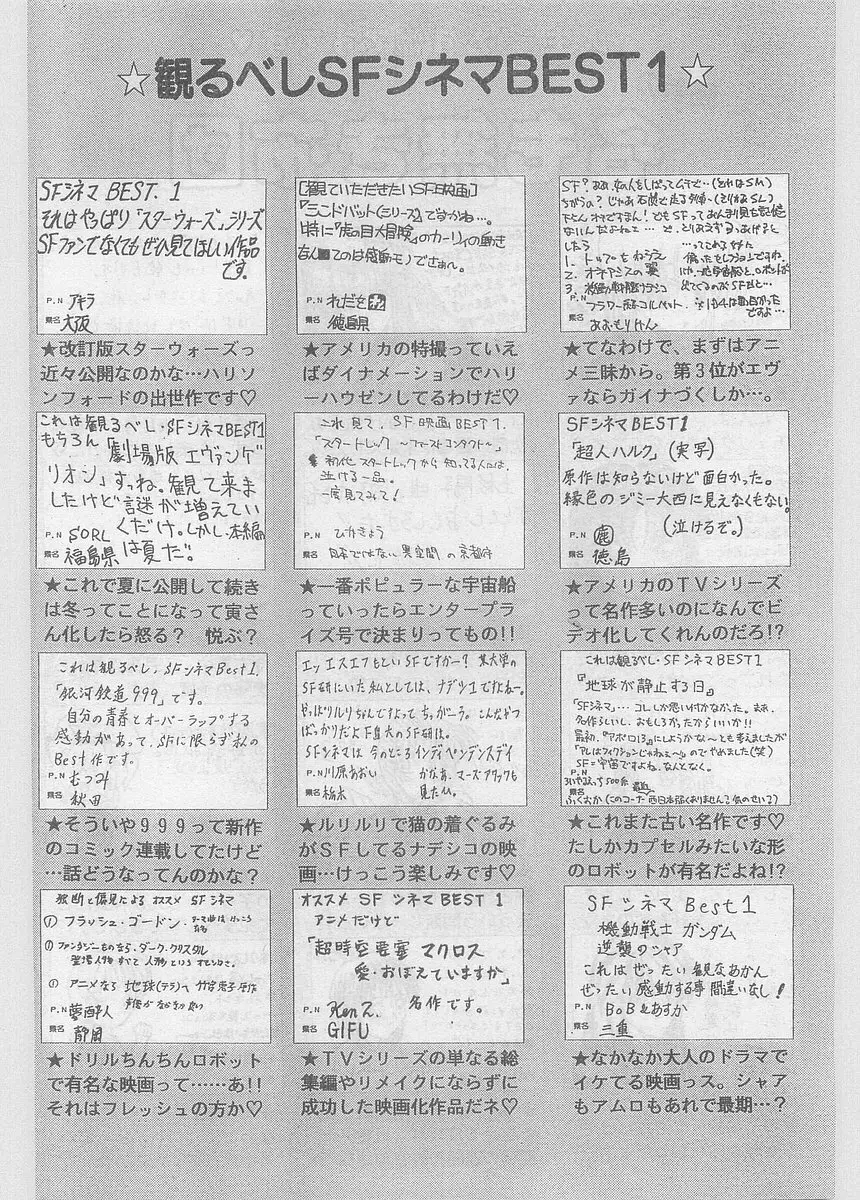 ☆観るべしSFシネマBEST1☆
SFシネマ BEST.1
それはやっぱり「スターウォーズ」シリーズ
SFファンでなくてもぜひ見てほしい作品
です。
P.N アキラ
県名 大阪
★改訂版スターウォーズっ
近々公開なのかな…ハリソ
ンフォードの出世作です♡
[観ていただきたいSF映画]
『シンドバット(シリーズ)』ですかね…。
特に『虎の目大冒険』のカーリィの動き
は感動モノでさぁ〜。
P.N れだを
県名 徳島県
★アメリカの特撮っていえ
ばダイナメーションでハリ
ーハウゼンしてるわけだ♡
1. トップをねらえ
2. オネアミスの翼
3.
P.N フラワー
県名 あおもりけん
★てなわけで、まずはアニ
メ三昧から。第3位がエヴ
ァならガイナづくしか…。
これは観るべし・SFシネマBEST1
もちろん「劇場版 エヴァンゲ
リオン」すっね。観て来ま
したけど謎が増えてい
くだけ。しかし本編
は夏だ。
P.N SORL
県名 福島県
★これで夏に公開して続き
は冬ってことになって寅さ
ん化したら怒る? 悦ぶ?
これ見て、SF映画BEST1.
「スタートレック 〜ファーストコンタクト〜」
初代スタートレックから知ってる人には、
泣ける一品。
一度見てみて!
P.N ひかきょう
県名 日本ではない異空間の京都府
★一番ポピュラーな宇宙船
っていったらエンタープラ
イズ号で決まりってもの!!
SFシネマBEST1
「超人ハルク」(実写)
原作は知らないけど面白かった。
緑色のジミー大西に見えなくもない。
(泣けるぞ。)
P.N
県名 徳島
★アメリカのTVシリーズ
って名作多いのになんでビ
デオ化してくれんのだろ!?
これは観るべし,SFシネマBest1.
「銀河鉄道999」です。
自分の青春とオーバーラップする
感動があって、SFに限らず私の
Best作です。
P.N むつみ
県名 秋田
★そういや999って新作
のコミック連載してたけど
…話どうなってんのかな?
エッ エスエフもといSFですかー? 某大学の
SF研にいた私としては、ナデシコですよねー。
やっぱりルリちゃんですよって ちっがーう。こんなやつ
ばっかりだよ
SFシネマは今のところインディペンデンスデイ
かなぁ。マーズアタックも
見たい。
P.N 川原あおい
県名 栃木
★ルリルリで猫の着ぐるみ
がSFしてるナデシコの映
画…けっこう楽しみです♡
これは観るべし・SFシネマBEST1
『地球が静止する日』
「SFシネマ」…コレしか思い付かなかった。まあ、
名作らしいし、おもしろかったからいいか!!
最初、『アポロ13』にしようかな〜とも考えましたが
「アレはフィクションじゃねぇ〜」のでやめました(笑)
SF=宇宙ですよね、なんとなく。
P.N
県名 ふくおか
★これまた古い名作です♡
たしかカプセルみたいな形
のロボットが有名だよね!?
独断と偏見による オススメ SFシネマ
① フラッシュ・ゴードン・
① ファンタジーものなら・ダーク・クリスタル
登場人物すべて人形という
① アニメなら 地球(テラ)へ 竹宮恵子原作
P.N 夢酔人
県名 静岡
★ドリルちんちんロボット
で有名な映画って……あ!!
それはフレッシュの方か♡
オススメ SFシネマBEST 1
アニメだけど
「超時空要塞 マクロス
愛・おぼえていますか」
名作です。
P.N Ken Z.
県名 GIFU
★TVシリーズの単なる総
集編やリメイクにならずに
成功した映画化作品だネ♡
SFシネマ Best1
機動戦士ガンダム
逆襲のシャア
これはぜったい観なあかん
ぜったい感動する事間違いなし!
P.N BoBあすか
県名 三重
★なかなか大人のドラマで
イケてる映画っス。シャア
もアムロもあれで最期…?